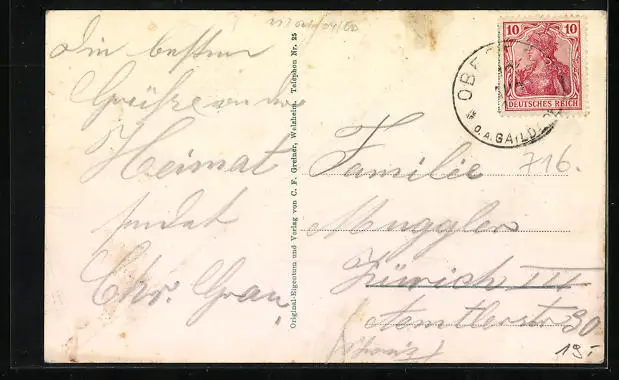 Die besten
Grüße an die
Heimat
sendet
Chr. Grau
Original-Eigentum und Verlag von C. F. Greiner, Welzheim. Telephon Nr. 25
10 10
DEUTSCHES REICH
OBE
O.A. GAILD
716.
Familie
Muggler
Zürich III
Aemtlerstr. 30
(Schweiz)
19.-